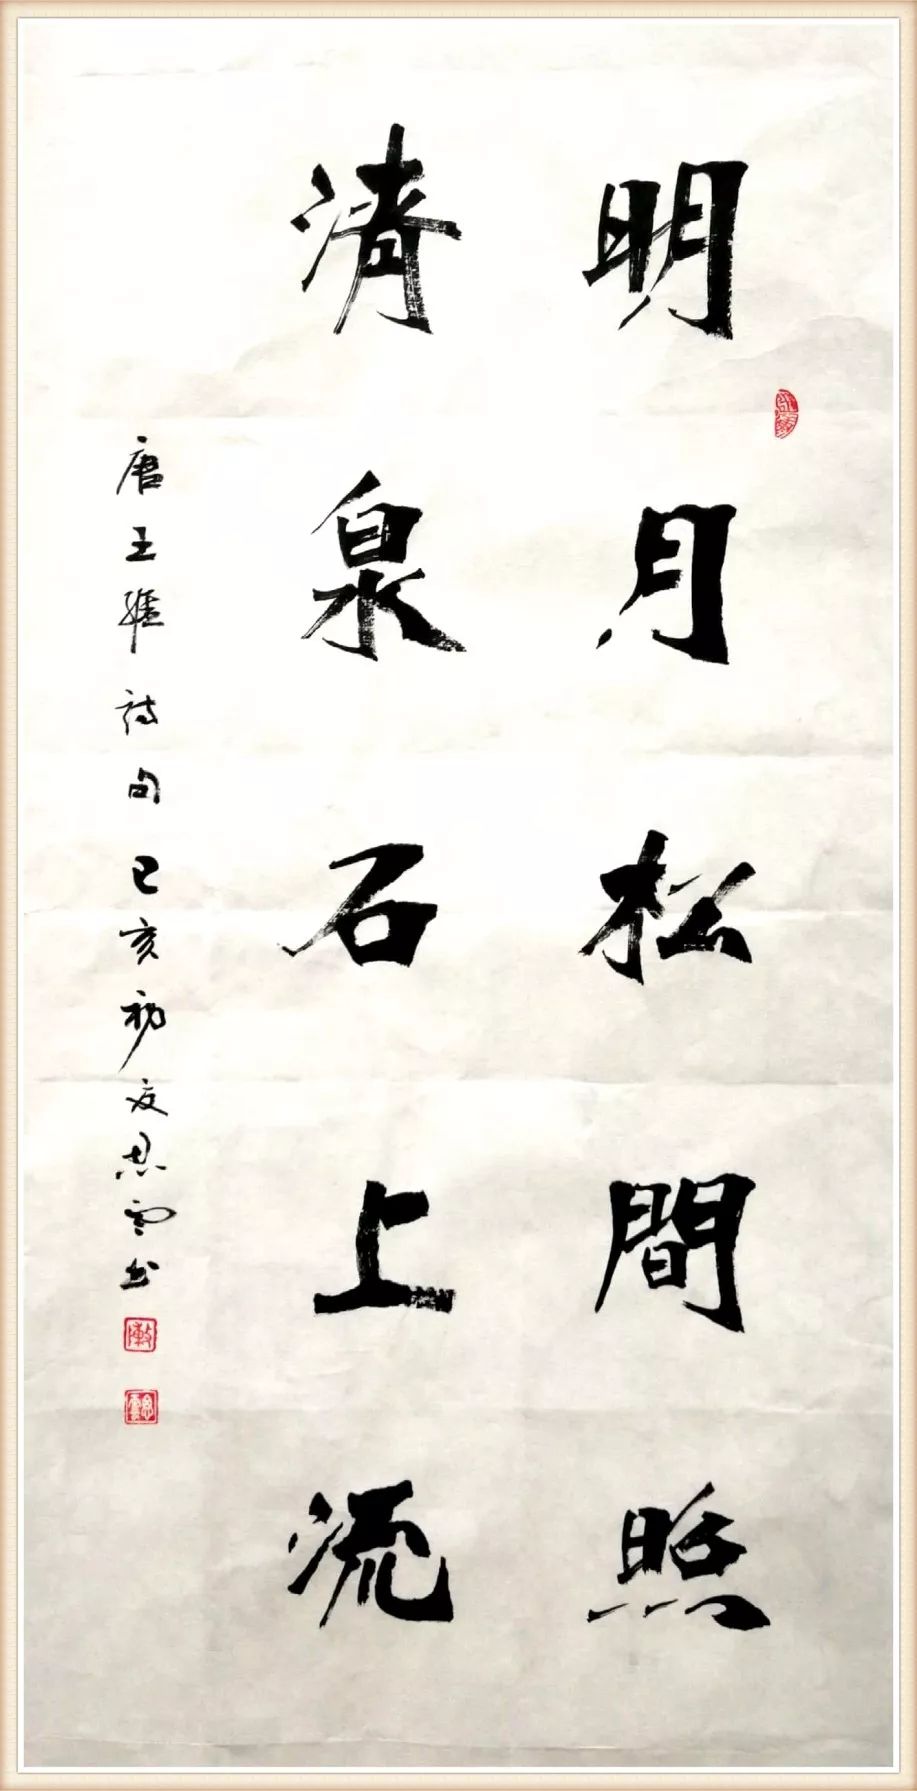 明月松間照
清泉石上流
唐王維詩句己亥初夏思雲书